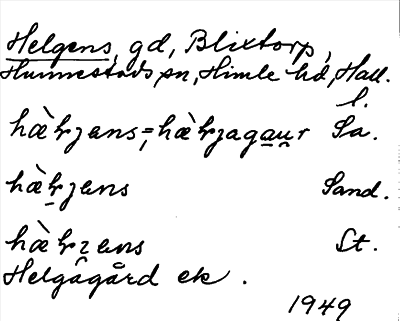 Helgens, gd, Blixtorp,
Hunnestads sn, Himle hd, Hall.
l.
hæ̀ɫʒens=, hæ̀ɫʒagau̯r Sa.
hæ̀ɫʒens Sand.
hæ̀ɫʒens St.
Helgagård ek.
1949